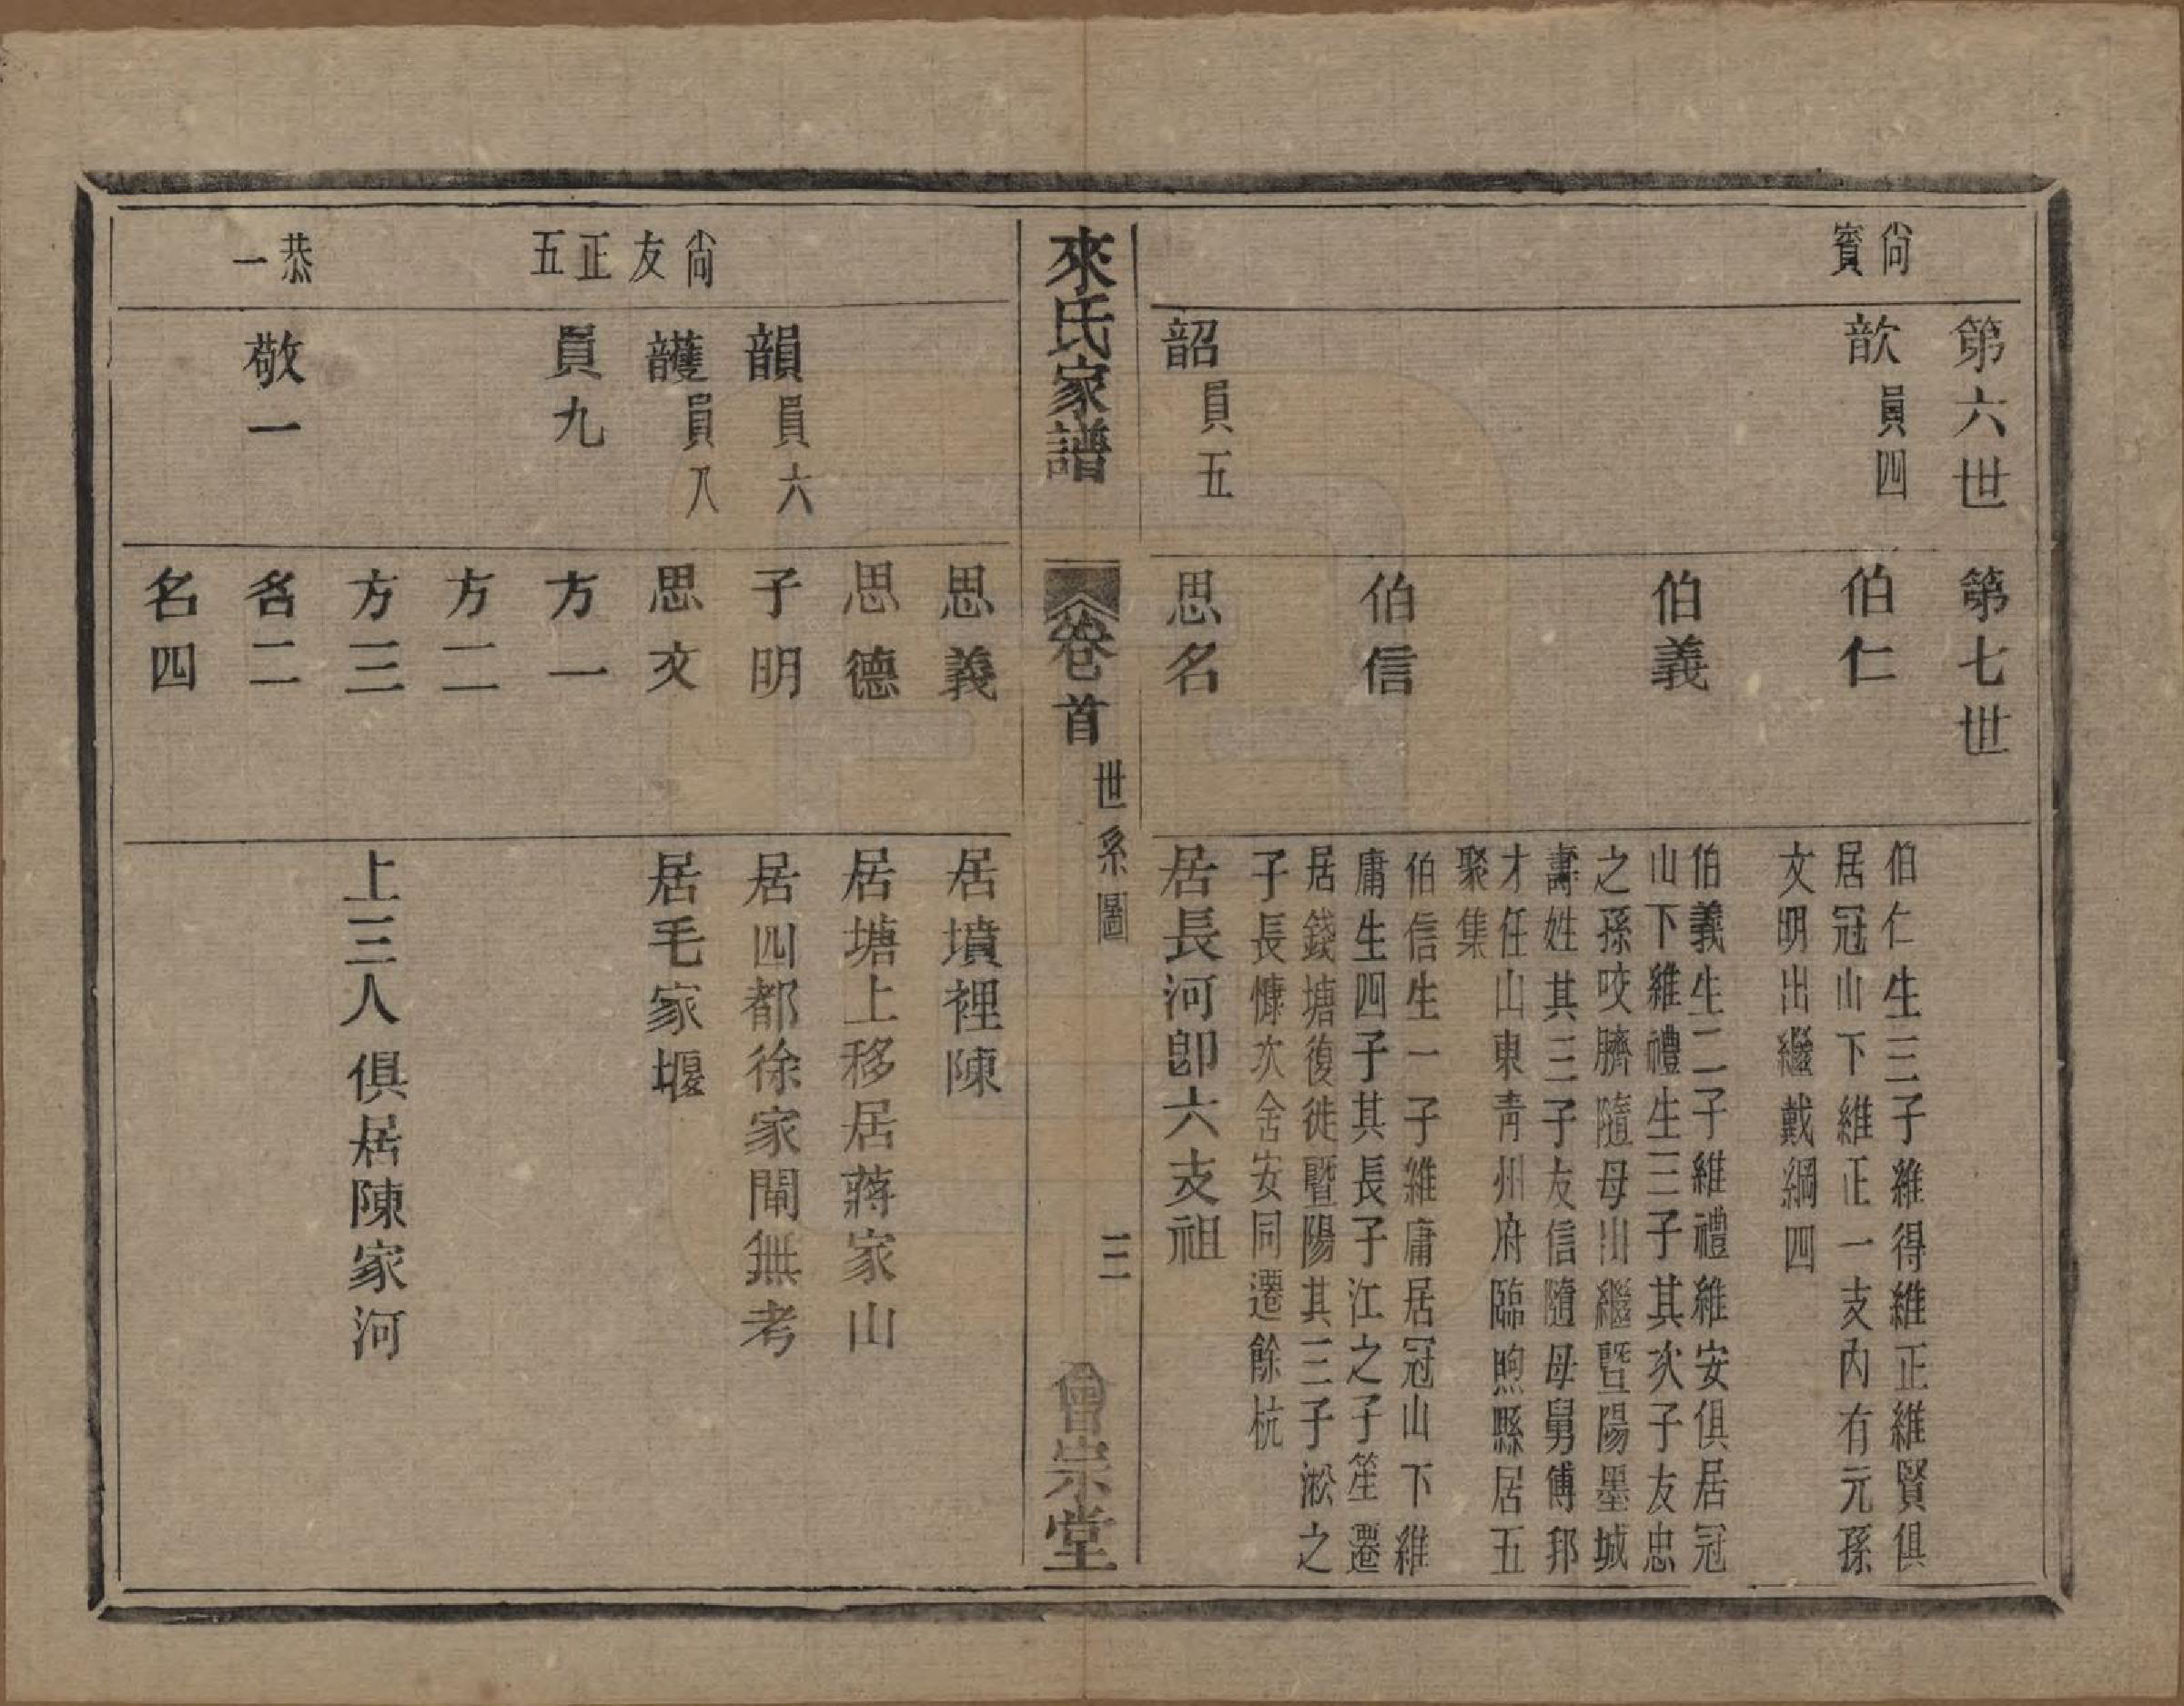 尙賓
第六世
歆員四
韶員五
第七世
伯仁
伯義
伯信
思名
伯仁生三子維得維正維賢俱
居冠山下維正一支內有元孫
文明出繼戴綱四
伯義生二子維禮維安俱居冠
山下維禮生三子其次子友忠
之孫咬臍隨母出繼暨陽墨城
壽姓其三子友信隨母舅傅邦
才任山東靑州府臨煦縣居五
聚集
伯信生一子維庸居冠山下維
庸生四子其長子江之子笙遷
居錢塘復徙暨陽其三子淞之
子長慷次舍安同遷餘杭
居長河卽六支祖
來氏家譜
卷首
世系圖
三
會宗堂
尙友正五
恭一
韻員六
頀員八
員九
敬一
思義
思德
子明
思文
方一
方二
方三
名二
名四
居墳裡陳
居塘上移居蔣家山
居四都徐家閘無考
居毛家堰
上三人俱居陳家河